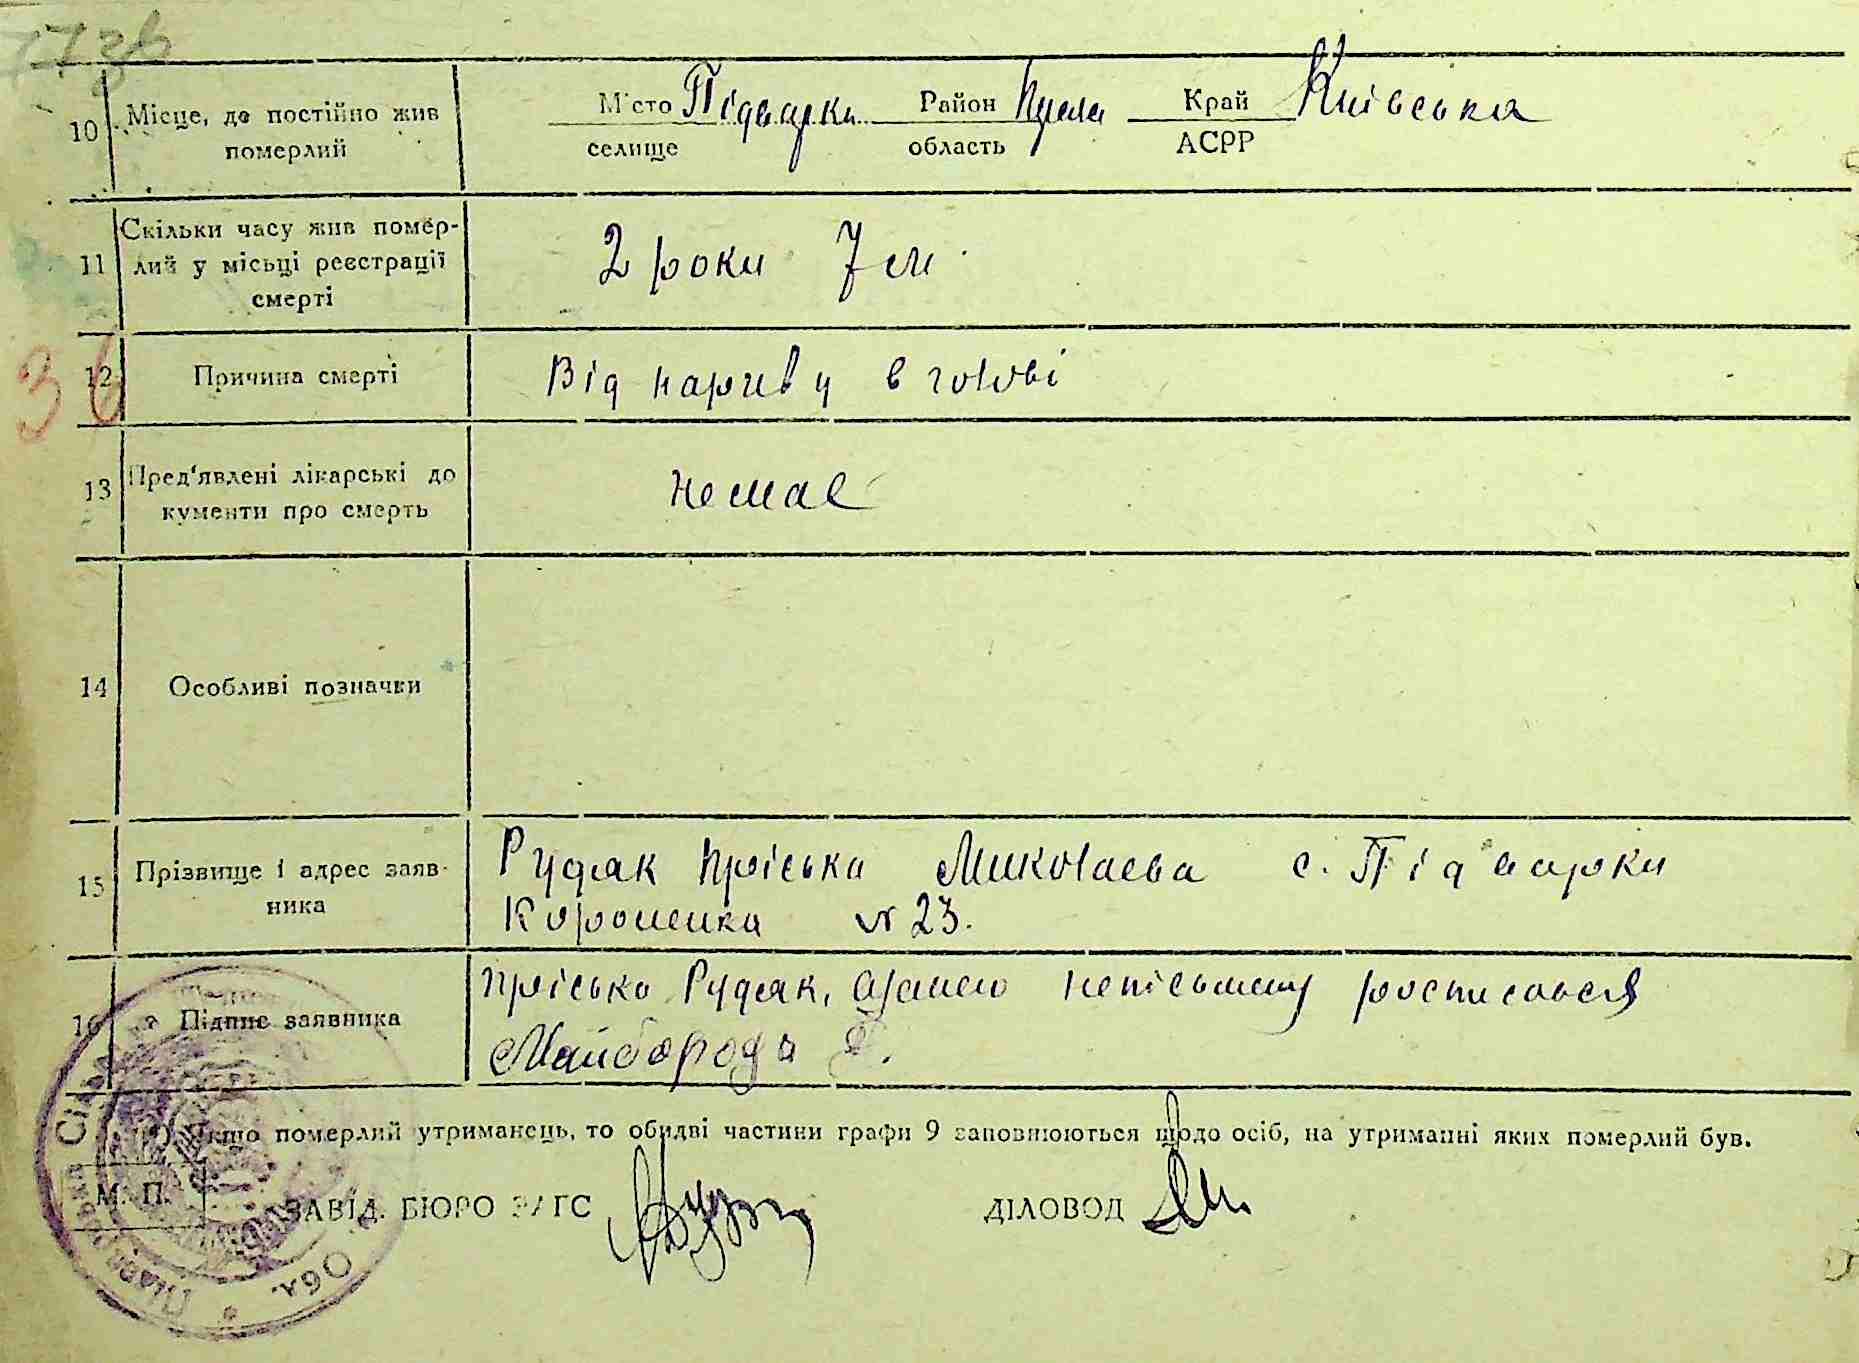 10 Місце, де постійно жив померлий
М'сто Підварки Район Край Київська
селище область АСРР
11 Скільки часу жив помер-
лий у місьці реєстрації
смерті
2 роки 7 м
36
12 Причина смерті
Від нариву в голові
13 Пред'явлені лікарські до
кументи про смерть
немає
14 Особливі позначки
15 Прізвище і адрес заяв-
ника
Рудяк Пріська Миколаєва с. Підварки
Короленка № 23.
16 Підпис заявника
Пріська Рудяк, неписьмену росписався
Майборода
Якщо померлий утриманець, то обидві частини графи 9 заповнюються щодо осіб, на утриманні яких померлий був.
М. П. ЗАВІД. БЮРО ЗАГС ДІЛОВОД
Обл.